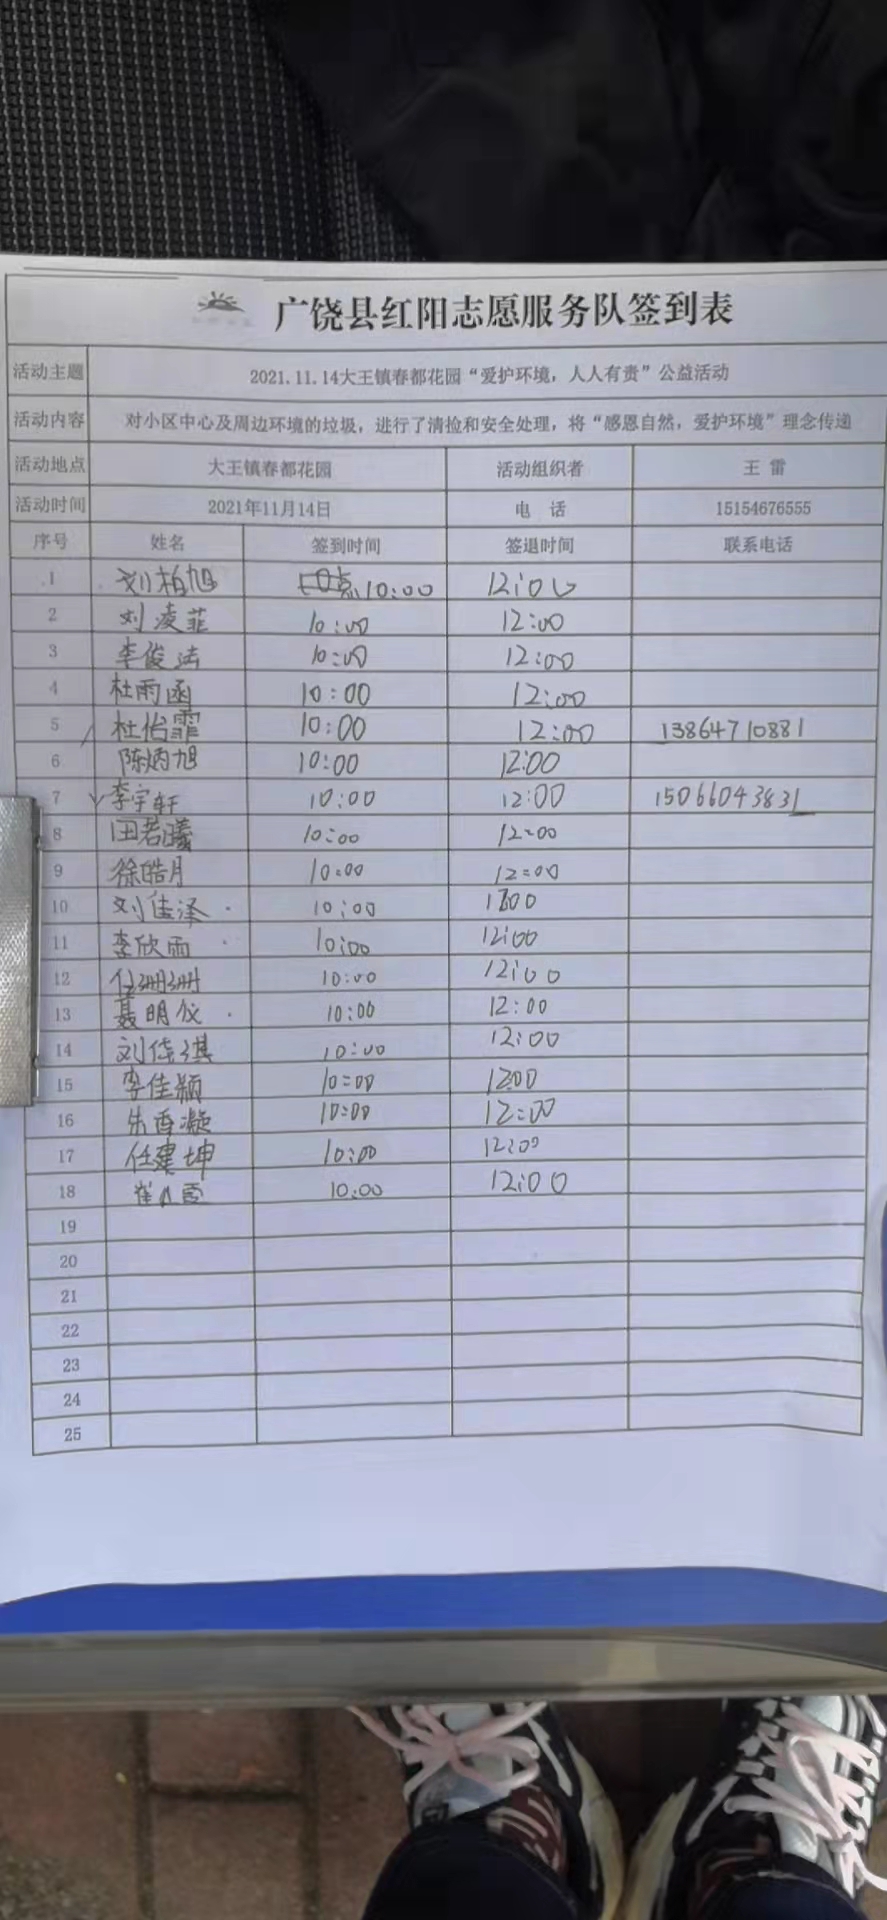 广饶县红阳志愿服务队签到表
活动主题 2021.11.14大王镇春都花园“爱护环境，人人有责”公益活动
活动内容 对小区中心及周边环境的垃圾，进行了清捡和安全处理，将“感恩自然，爱护环境”理念传递
活动地点 大王镇春都花园 活动组织者 王雷
活动时间 2021年11月14日 电话 15154676555
序号 姓名 签到时间 签退时间 联系电话
1 刘柏旭 10:00 12:00
2 刘凌菲 10:00 12:00
3 李俊法 10:00 12:00
4 杜雨函 10:00 12:00
5 杜怡霏 10:00 12:00 13864710881
6 陈炳旭 10:00 12:00
7 李宇轩 10:00 12:00 15066043831
8 田若曦 10:00 12:00
9 徐皓月 10:00 12:00
10 刘佳泽 10:00 12:00
11 李欣雨 10:00 12:00
12 任珊珊 10:00 12:00
13 聂明仪 10:00 12:00
14 刘佳琪 10:00 12:00
15 李佳颖 10:00 1200
16 朱香凝 10:00 12:00
17 任建坤 10:00 12:00
18 崔 霞 10:00 12:00
19
20
21
22
23
24
25